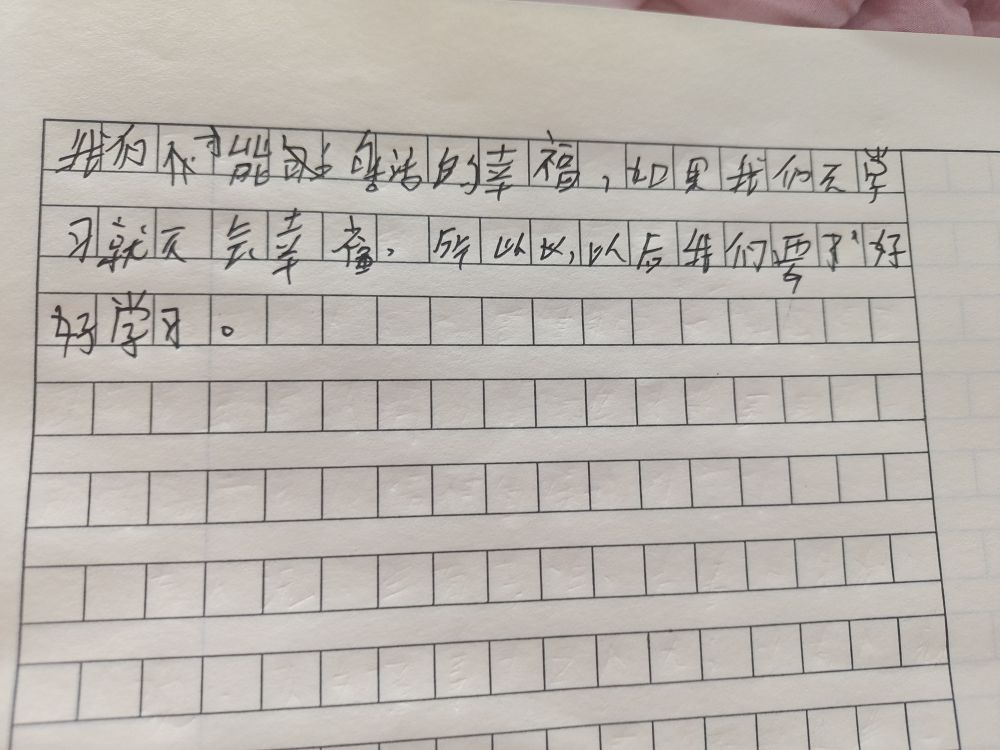 我们才能够生活的幸福,如果我们不学
习就不会幸福,所以以,以后我们要才好
好学习。